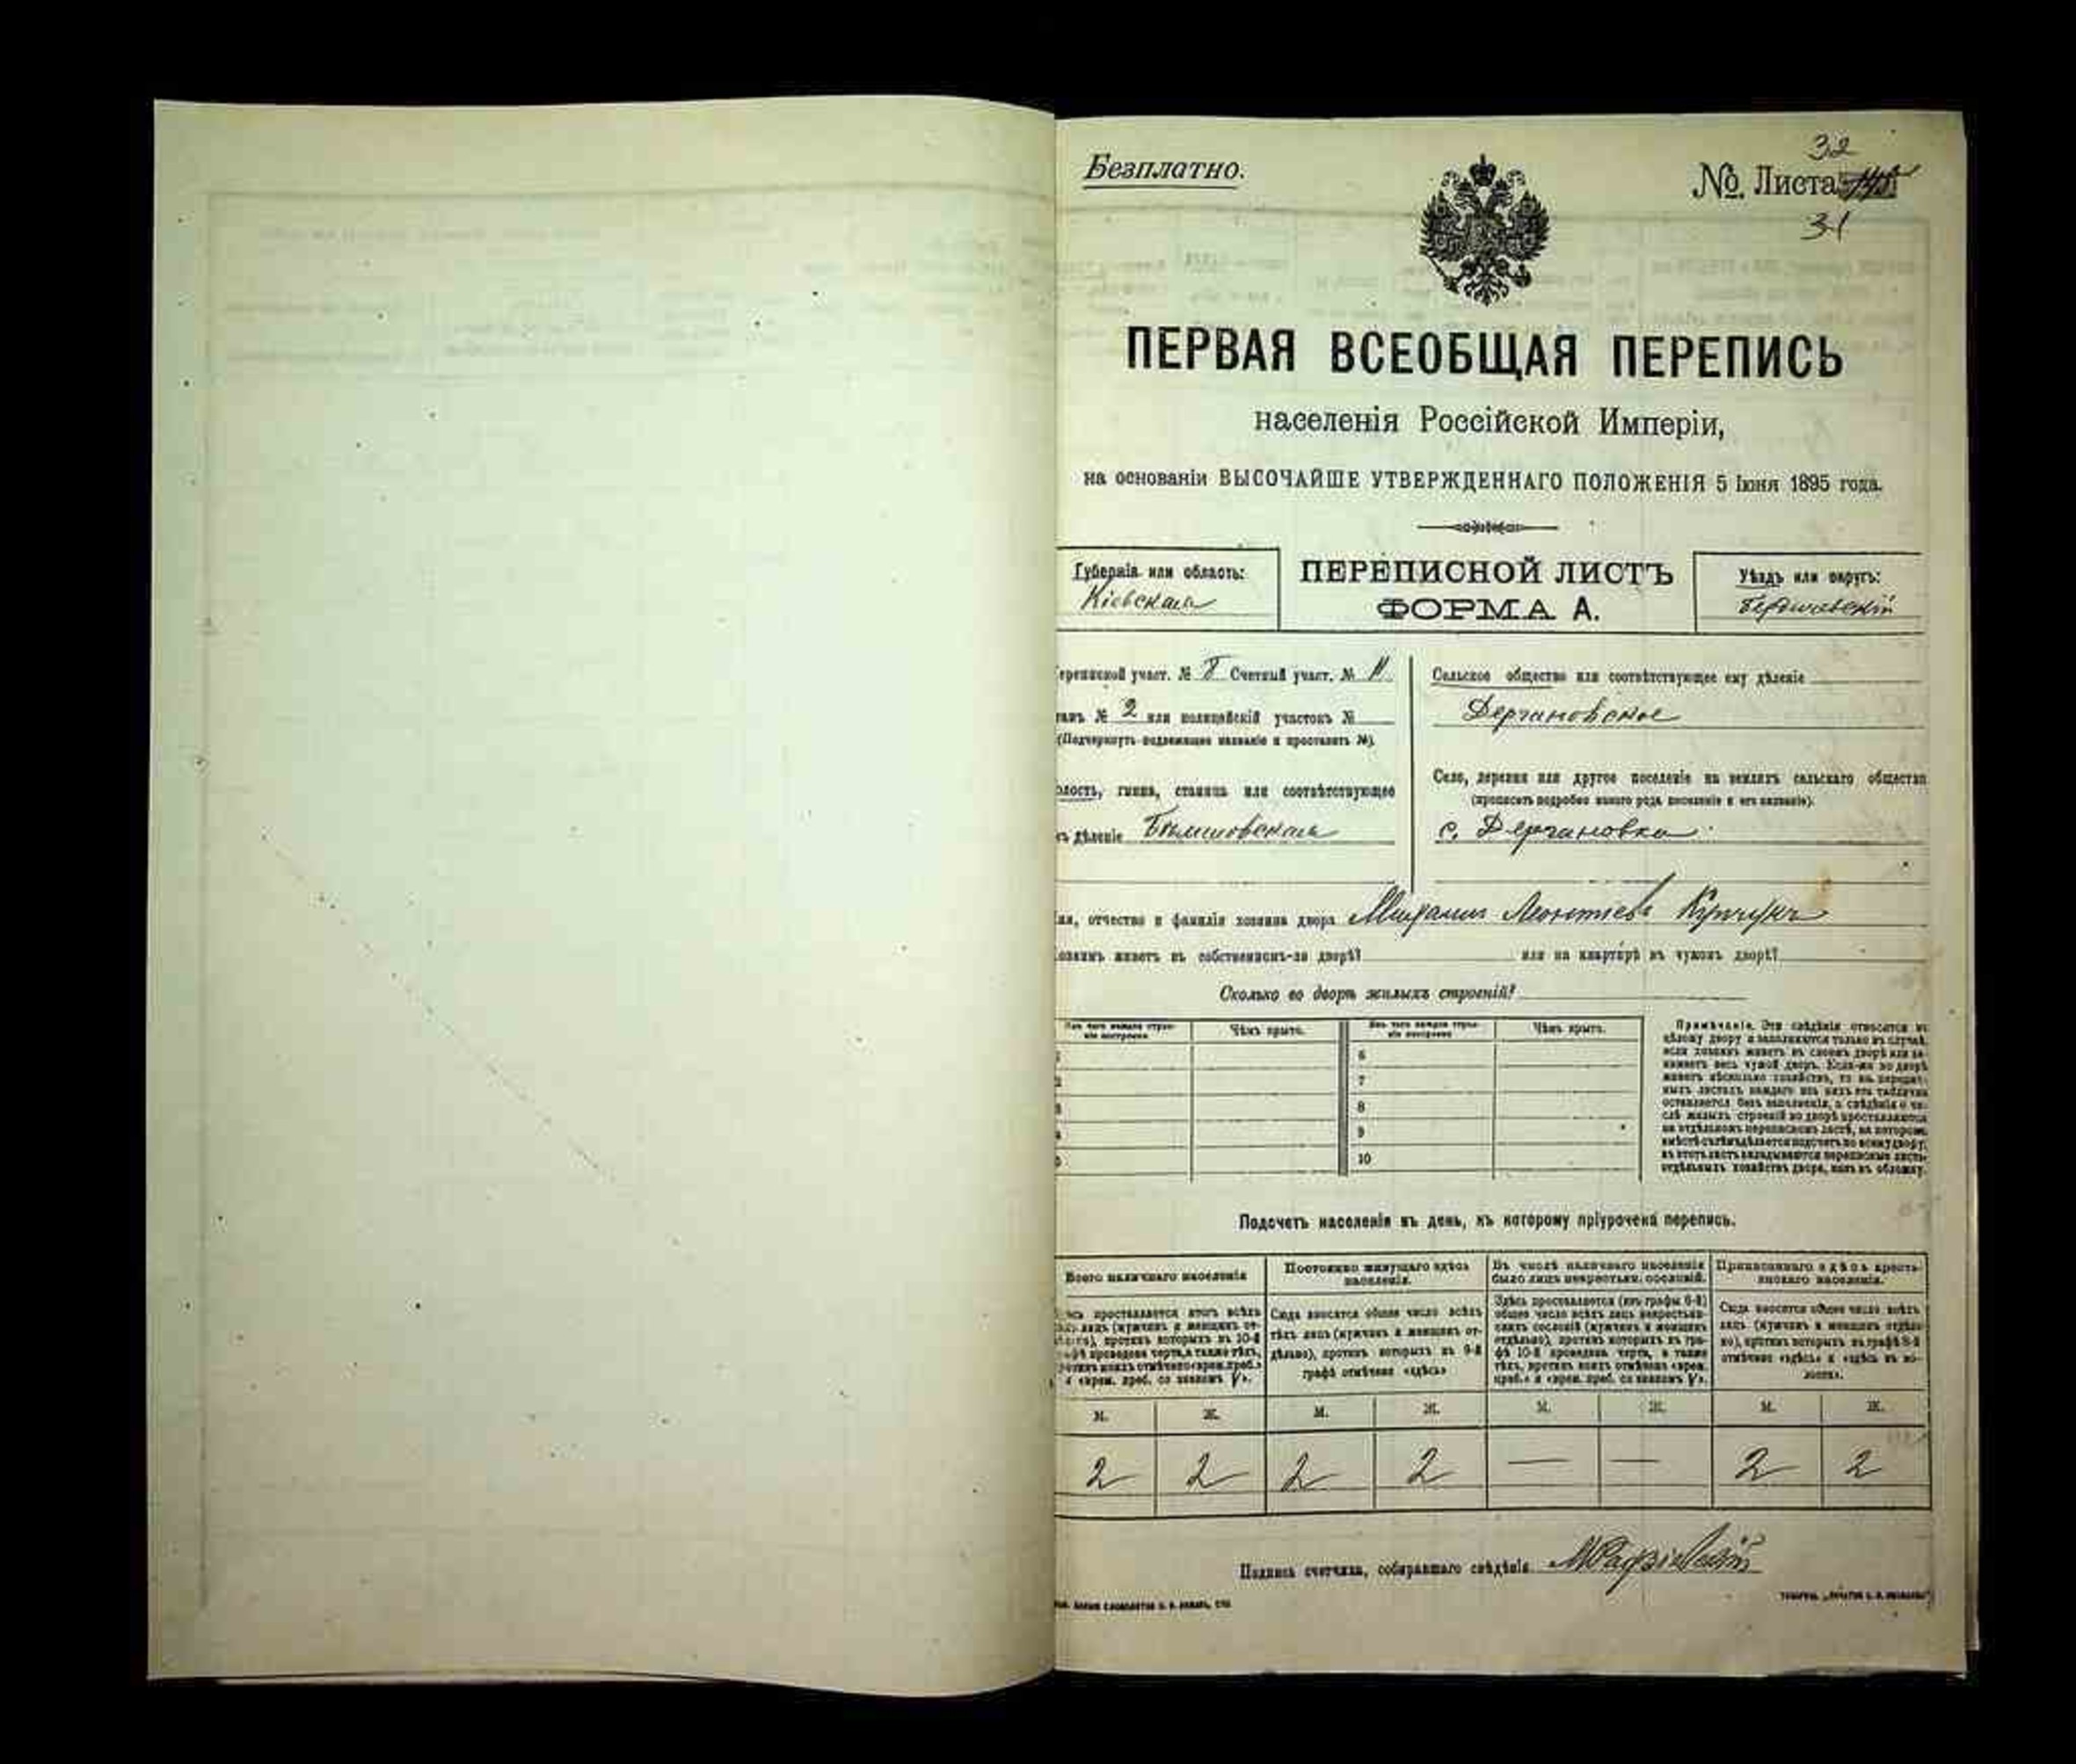 Безплатно.
32
№ Листа
31
ПЕРВАЯ ВСЕОБЩАЯ ПЕРЕПИСЬ
населенія Россійской Имперіи,
на основаніи ВЫСОЧАЙШЕ УТВЕРЖДЕННАГО ПОЛОЖЕНІЯ 5 Іюня 1895 года.
Губернія или область:
Кіевская
ПЕРЕПИСНОЙ ЛИСТЪ
ФОРМА А.
Уѣздъ или округъ:
Бердичевскій
ереписной участ. № 8 Счетный участ. № 11
танъ № 2 или полицейскій участокъ №
(Подчеркнуть подлежащее названіе и проставить №).
олость, гмина, станица или соотвѣтствующее
ъ дѣленіе
Сельское общество или соотвѣтствующее ему дѣленіе
Дергановское
Село, деревня или другое поселеніе на земляхъ сельскаго общества
(прописать подробно какого рода поселеніе и его названіе).
с. Дергановка
мя, отчество и фамилія хозяина двора Михаилъ Леонтіевъ
озяинъ живетъ въ собственномъ-ли дворѣ? или на квартирѣ въ чужомъ дворѣ?
Сколько во дворѣ жилыхъ строеній?
Изъ чего каждое строеніе построено. Чѣмъ крыто. Изъ чего каждое строеніе построено. Чѣмъ крыто.
6
7
8
9
10
Примѣчаніе. Эти свѣдѣнія относятся къ
цѣлому двору и заполняются только въ случаѣ,
если хозяинъ живетъ въ своемъ дворѣ или за-
нимаетъ весь чужой дворъ. Если-же во дворѣ
живетъ нѣсколько хозяйствъ, то на перепис-
ныхъ листахъ каждаго изъ нихъ эта табличка
оставляется безъ заполненія, а свѣдѣнія о чи-
слѣ жилыхъ строеній во дворѣ проставляются
на отдѣльномъ переписномъ листѣ, на которомъ
вмѣстѣ съ тѣмъ дѣлается подсчетъ по всему двору;
въ этотъ листъ вкладываются переписные листы
отдѣльныхъ хозяйствъ двора, какъ въ обложку.
Подсчетъ населенія въ день, къ которому пріурочена перепись.
Всего наличнаго населенія
Постоянно живущаго здѣсь
населенія.
Въ числѣ наличнаго населенія
было лицъ некрестьян. сословій.
Приписаннаго здѣсь кресть-
янскаго населенія.
проставляется итогъ всѣхъ
лицъ (мужчинъ и женщинъ от-
противъ которыхъ въ 10-й
проведена черта, а также тѣхъ,
противъ коихъ отмѣчено «врем. преб.»
и «врем. преб. со знакомъ V».
Сюда вносится общее число всѣхъ
тѣхъ лицъ (мужчинъ и женщинъ от-
дѣльно), противъ которыхъ въ 9-й
графѣ отмѣчено «здѣсь»
Здѣсь проставляется (изъ графы 6-й)
общее число всѣхъ лицъ некрестьян-
скихъ сословій (мужчинъ и женщинъ
отдѣльно), противъ которыхъ въ гра-
фѣ 10-й проведена черта, а также
тѣхъ, противъ коихъ отмѣчено «врем.
преб.» и «врем. преб. со знакомъ V».
Сюда вносится общее число всѣхъ
лицъ (мужчинъ и женщинъ отдѣль-
но), противъ которыхъ въ графѣ 8-й
отмѣчено «здѣсь» и «здѣсь въ во-
лости».
М. Ж. М. Ж. М. Ж. М. Ж.
2 2 2 2 — — 2 2
Подпись счетчика, собиравшаго свѣдѣнія